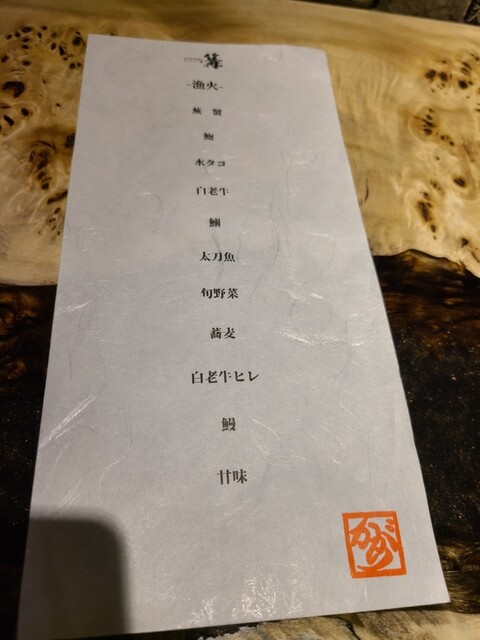 篝
-漁火-
蕪 蟹
鮑
水タコ
白老牛
鰤
太刀魚
旬野菜
蕎麦
白老牛ヒレ
鰻
甘味
かがり